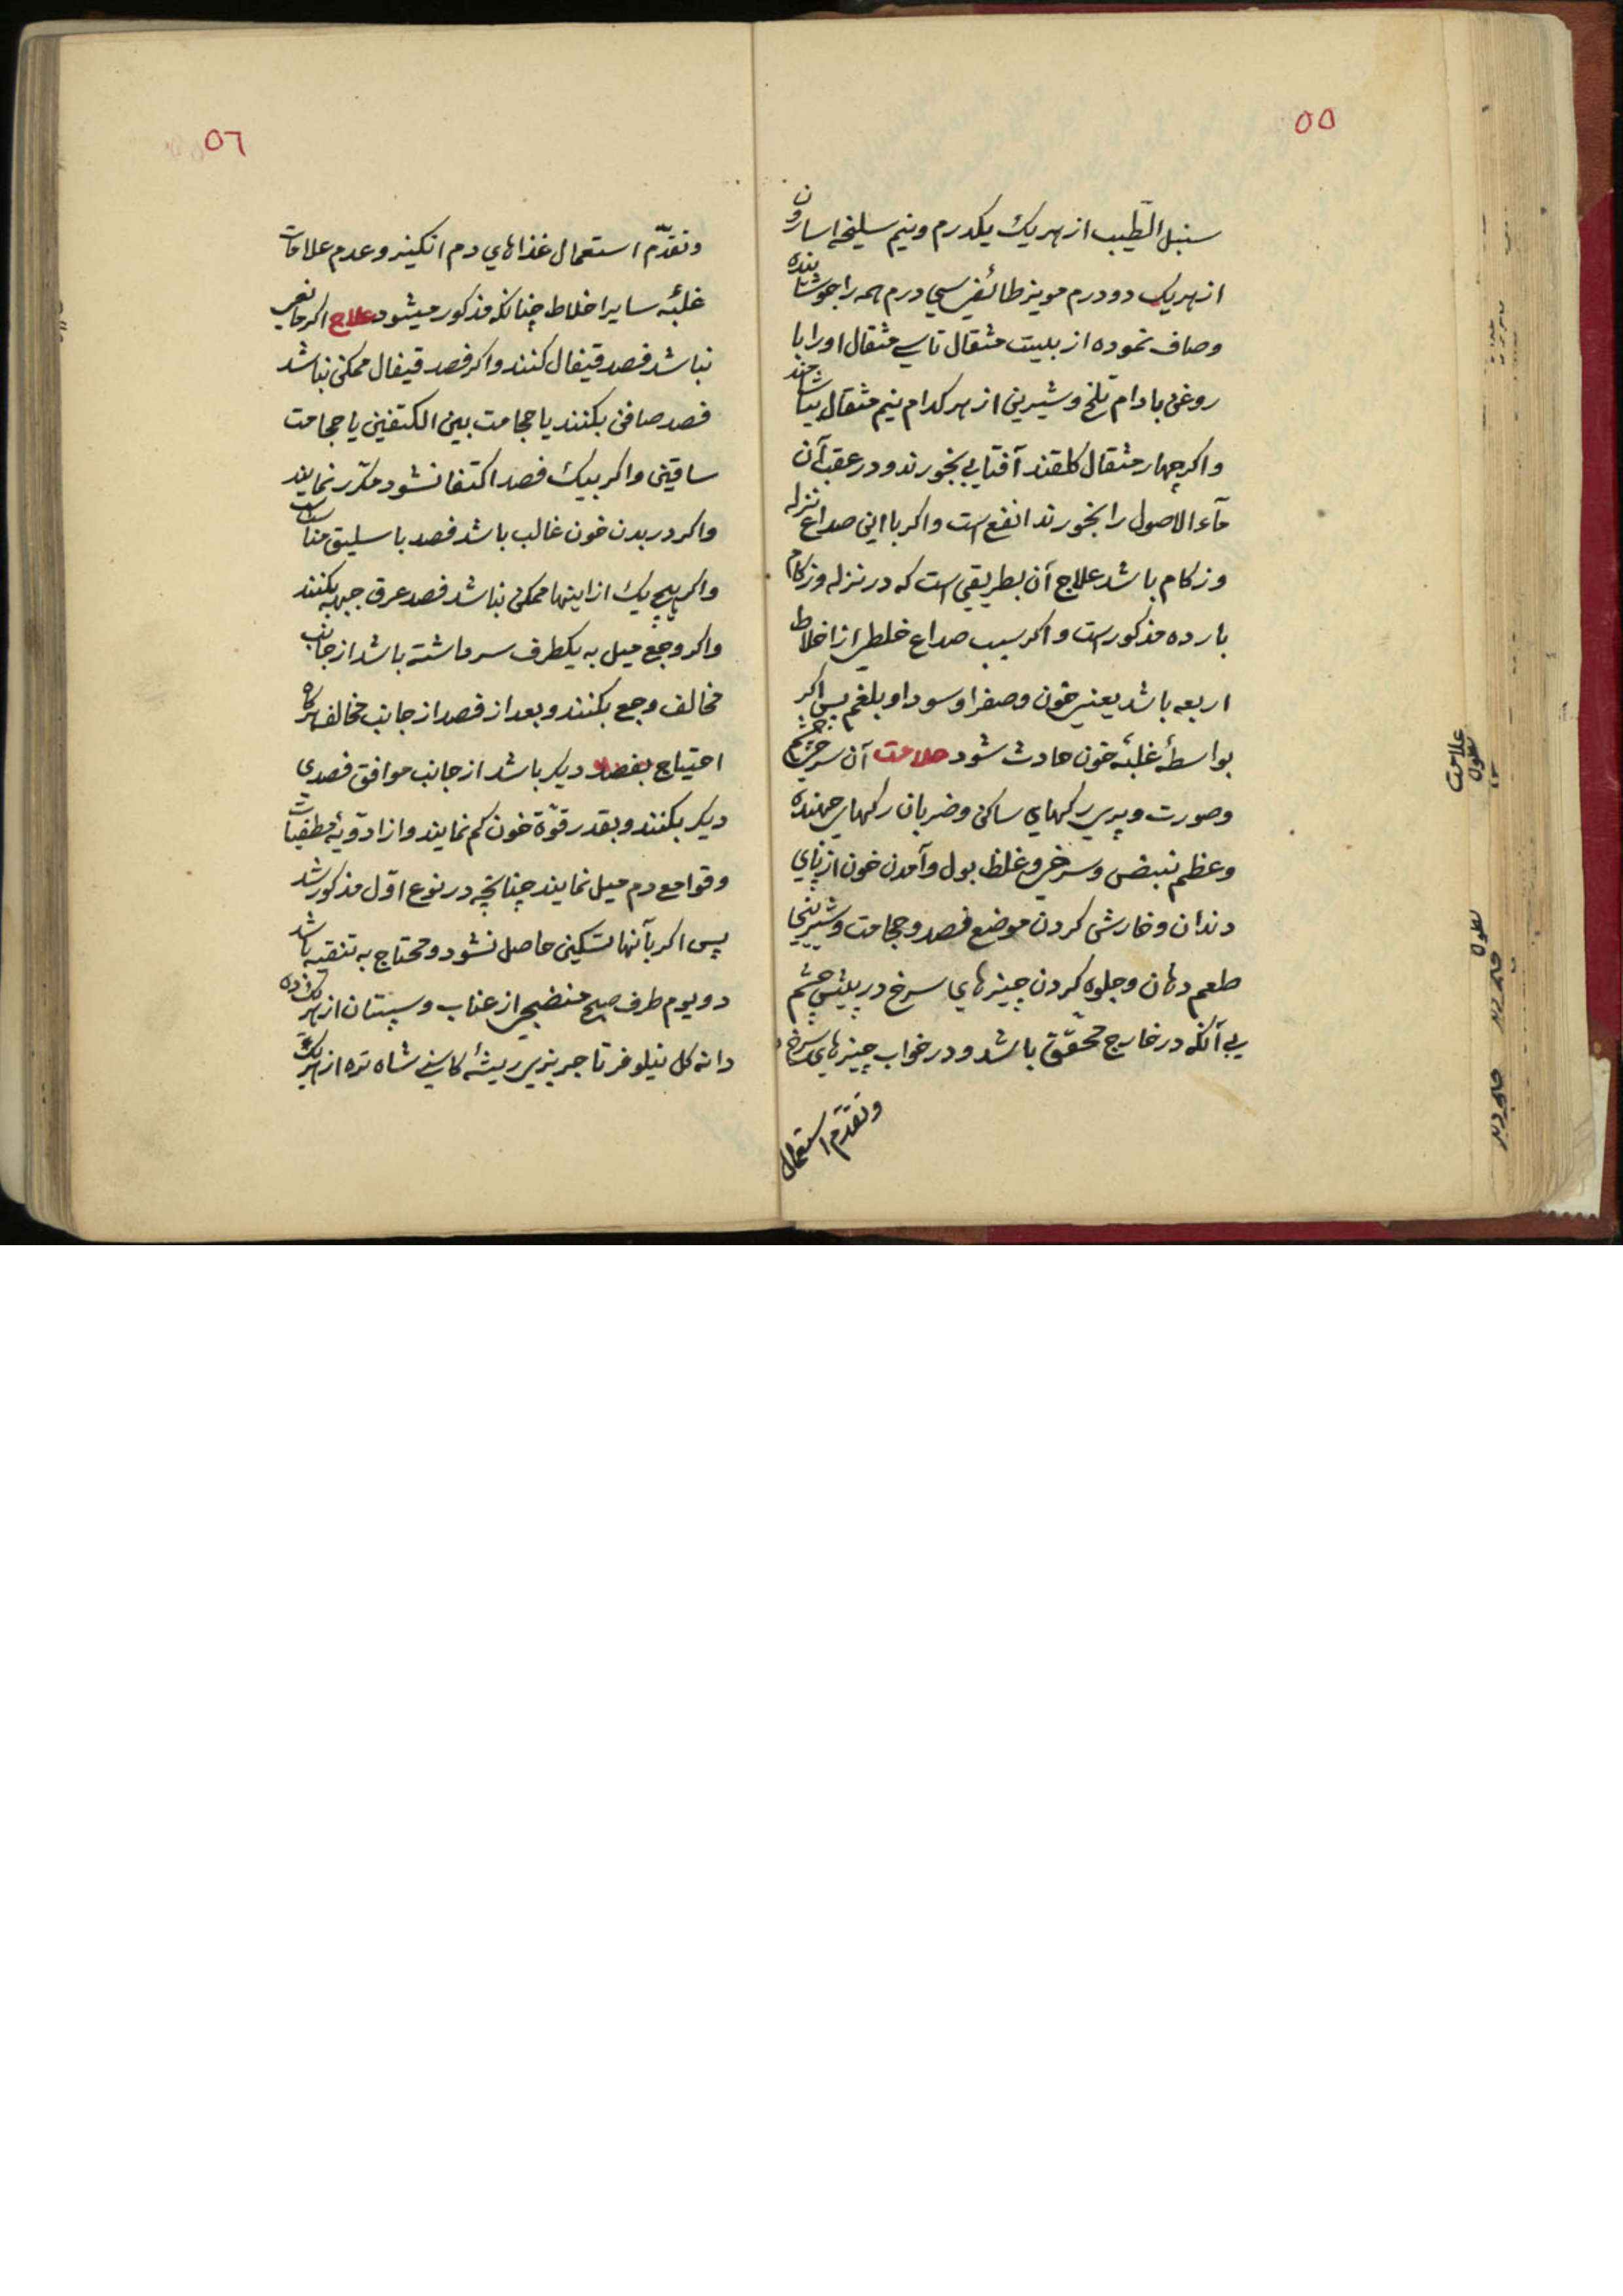 ۵۵
سنبل الطّیب از هر یک یکدرم و نیم سلیخه اسارون
از هر یک دو درم مویز طائفی سی درم همه را جوشانیده
و صاف نموده از بیست مثقال تا سی مثقال او را با
روغن بادام تلخ و شیرین از هر کدام نیم مثقال بیاشامند
و اکر چهار مثقال کلقند آفتابی بخورند و در عقب آن
ماء الاصول را بخورند انفع است و اکر با این صداع نزله
و زکام باشد علاج آن بطریقی است که در نزله و زکام
بارده مذکور است و اکر سبب صداع خلطی از اخلاط
اربعه باشد یعنی خون و صفرا و سودا و بلغم پس اکر
بواسطهٔ غلبهٔ خون حادث شود علامت آن سرخی چشم
و صورت و پری رکهای ساکن و ضربان رکهای جهنده
و عظم نبض و سرخی و غلظ بول و آمدن خون از بنهای
دندان و خارش کردن موضع فصد و حجامت و شیرینی
طعم دهان و جلوه کردن چیزهای سرخ در پیش چشم
بی آنکه در خارج محقّق باشد و در خواب چیزهای سرخ
و تقدّم استعمال
۵٦
و تقدّم استعمال غذاهای دم انکیز و عدم علامات
غلبهٔ سایر اخلاط چنانکه مذکور میشود علاج اکر مانعی
نباشد فصد قیفال کنند و اکر فصد قیفال ممکن نباشد
فصد صافن بکنند یا حجامت بین الکتفین یا حجامت
ساقین و اکر بیک فصد اکتفا نشود مکرّر نمایند
و اکر در بدن خون غالب باشد فصد باسلیق مناسب
و اکر هیچ یک از اینها ممکن نباشد فصد عرق جبهه بکنند
و اکر وجع میل به یکطرف سر داشته باشد از جانب
مخالف وجع بکنند و بعد از فصد از جانب مخالف هرکاه
احتیاج بفصد دیکر باشد از جانب موافق فصدی
دیکر بکنند و بقدر قوّة خون کم نمایند و از ادویهٔ مطفیات
و قوامع دم میل نمایند چنانچه در نوع اوّل مذکور شد
پس اکر بآنها تسکین حاصل نشود و محتاج به تنقیه باشد
دو یوم طرف صبح منضجی از عناب و سپستان از هر یک ده
دانه کل نیلوفر تاجریزی ریشهٔ کاسنی شاه تره از هر یک
علامت